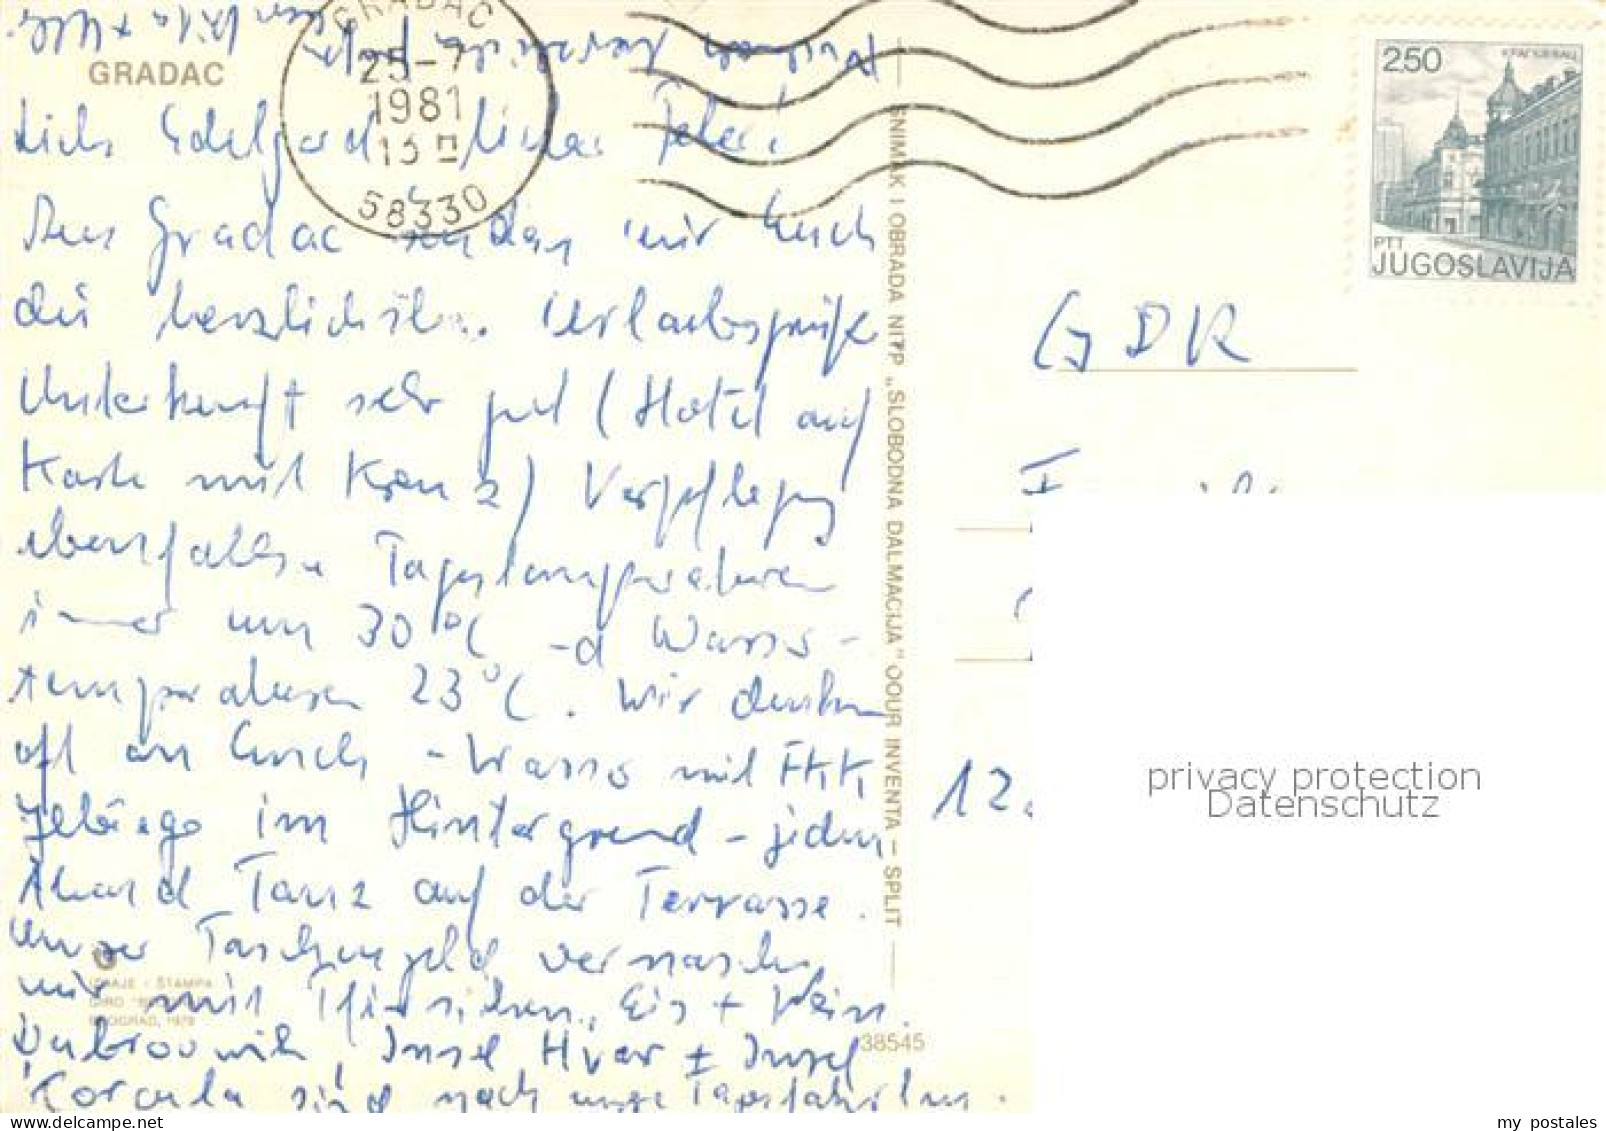 GRADAC
GRADAC
25-7
1981
13
58330
250
PTT
JUGOSLAVIJA
Liebe Edelgard, lieber Peter!
Aus Gradac senden wir Euch
die herzlichsten Urlaubsgrüße
Unterkunft sehr gut (Hotel auf
Karte mit Kreuz) Verpflegung
ebenfalls. Tagestemperaturen
immer um 30°C und Wasser-
temperaturen 23°C. Wir denken
oft an Euch - Wasser mit FKK
Gebirge im Hintergrund - jeden
Abend Tanz auf der Terrasse.
Unser Taschengeld vernaschen
wir mit Pfirsichen, Eis + Wein.
Dubrovnik, Insel Hvar + Insel
Korcula sind noch unsre Tagesfahrten.
SNIMAK I OBRADA NITP „SLOBODNA DALMACIJA" OOUR INVENTA – SPLIT
ŠTAMPA
BEOGRAD, 1979
38545
GDR
12
privacy protection
Datenschutz
my postales